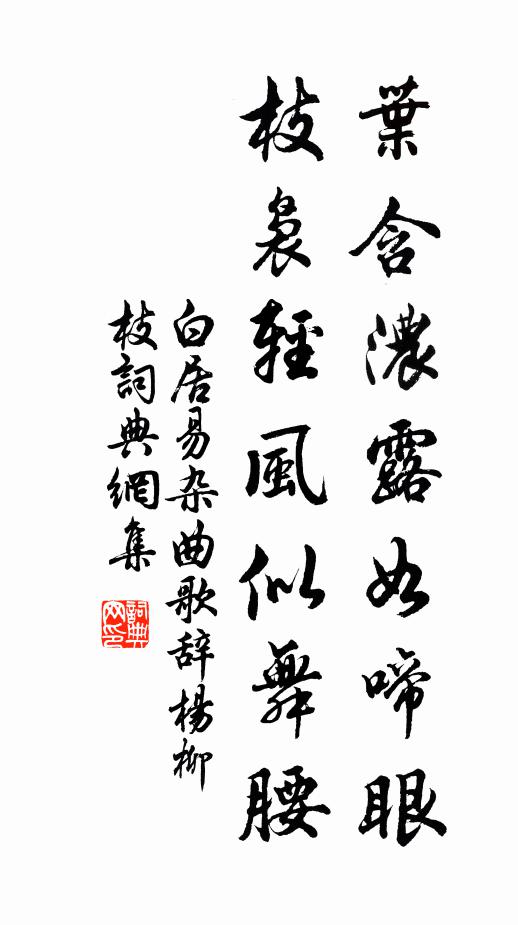 葉含濃露如啼眼
枝裊輕風似舞腰
白居易杂曲歌辞楊柳
枝詞典網集
詞典網印